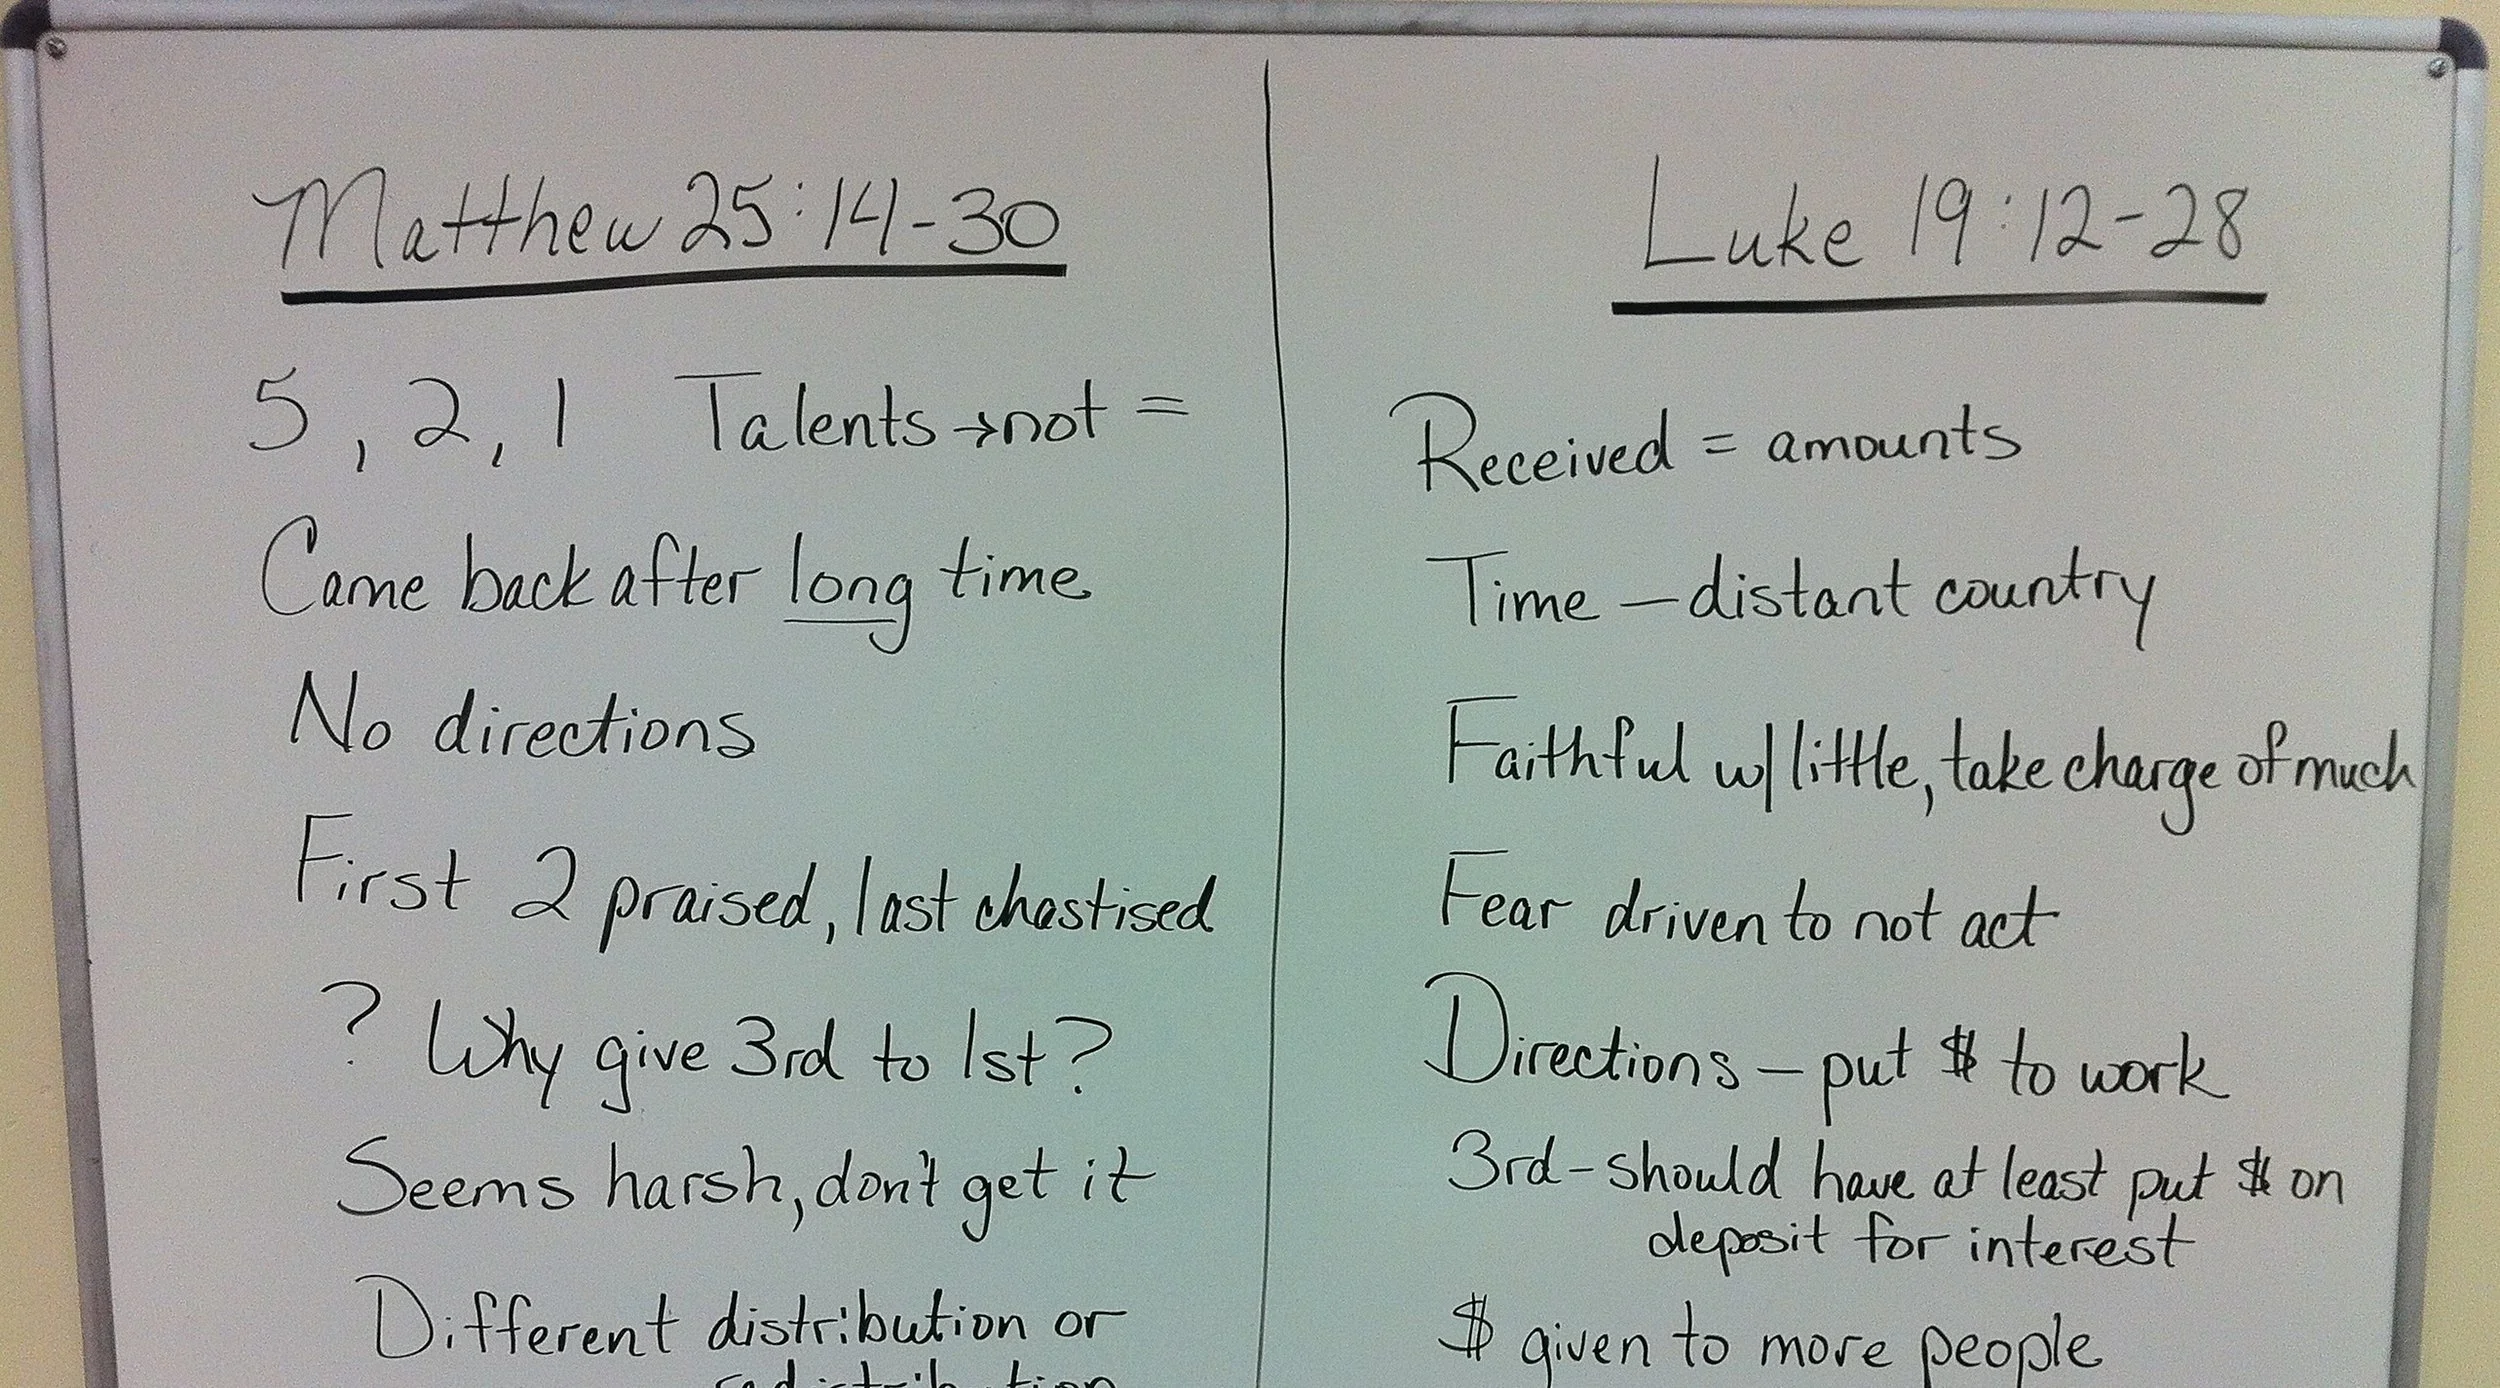 Matthew 25:14-30
5, 2, 1 Talents → not =
Came back after long time
No directions
First 2 praised, last chastised
? Why give 3rd to 1st?
Seems harsh, don't get it
Different distribution or
redistribution
Luke 19:12-28
Received = amounts
Time — distant country
Faithful w/ little, take charge of much
Fear driven to not act
Directions - put $ to work
3rd - should have at least put $ on
deposit for interest
$ given to more people